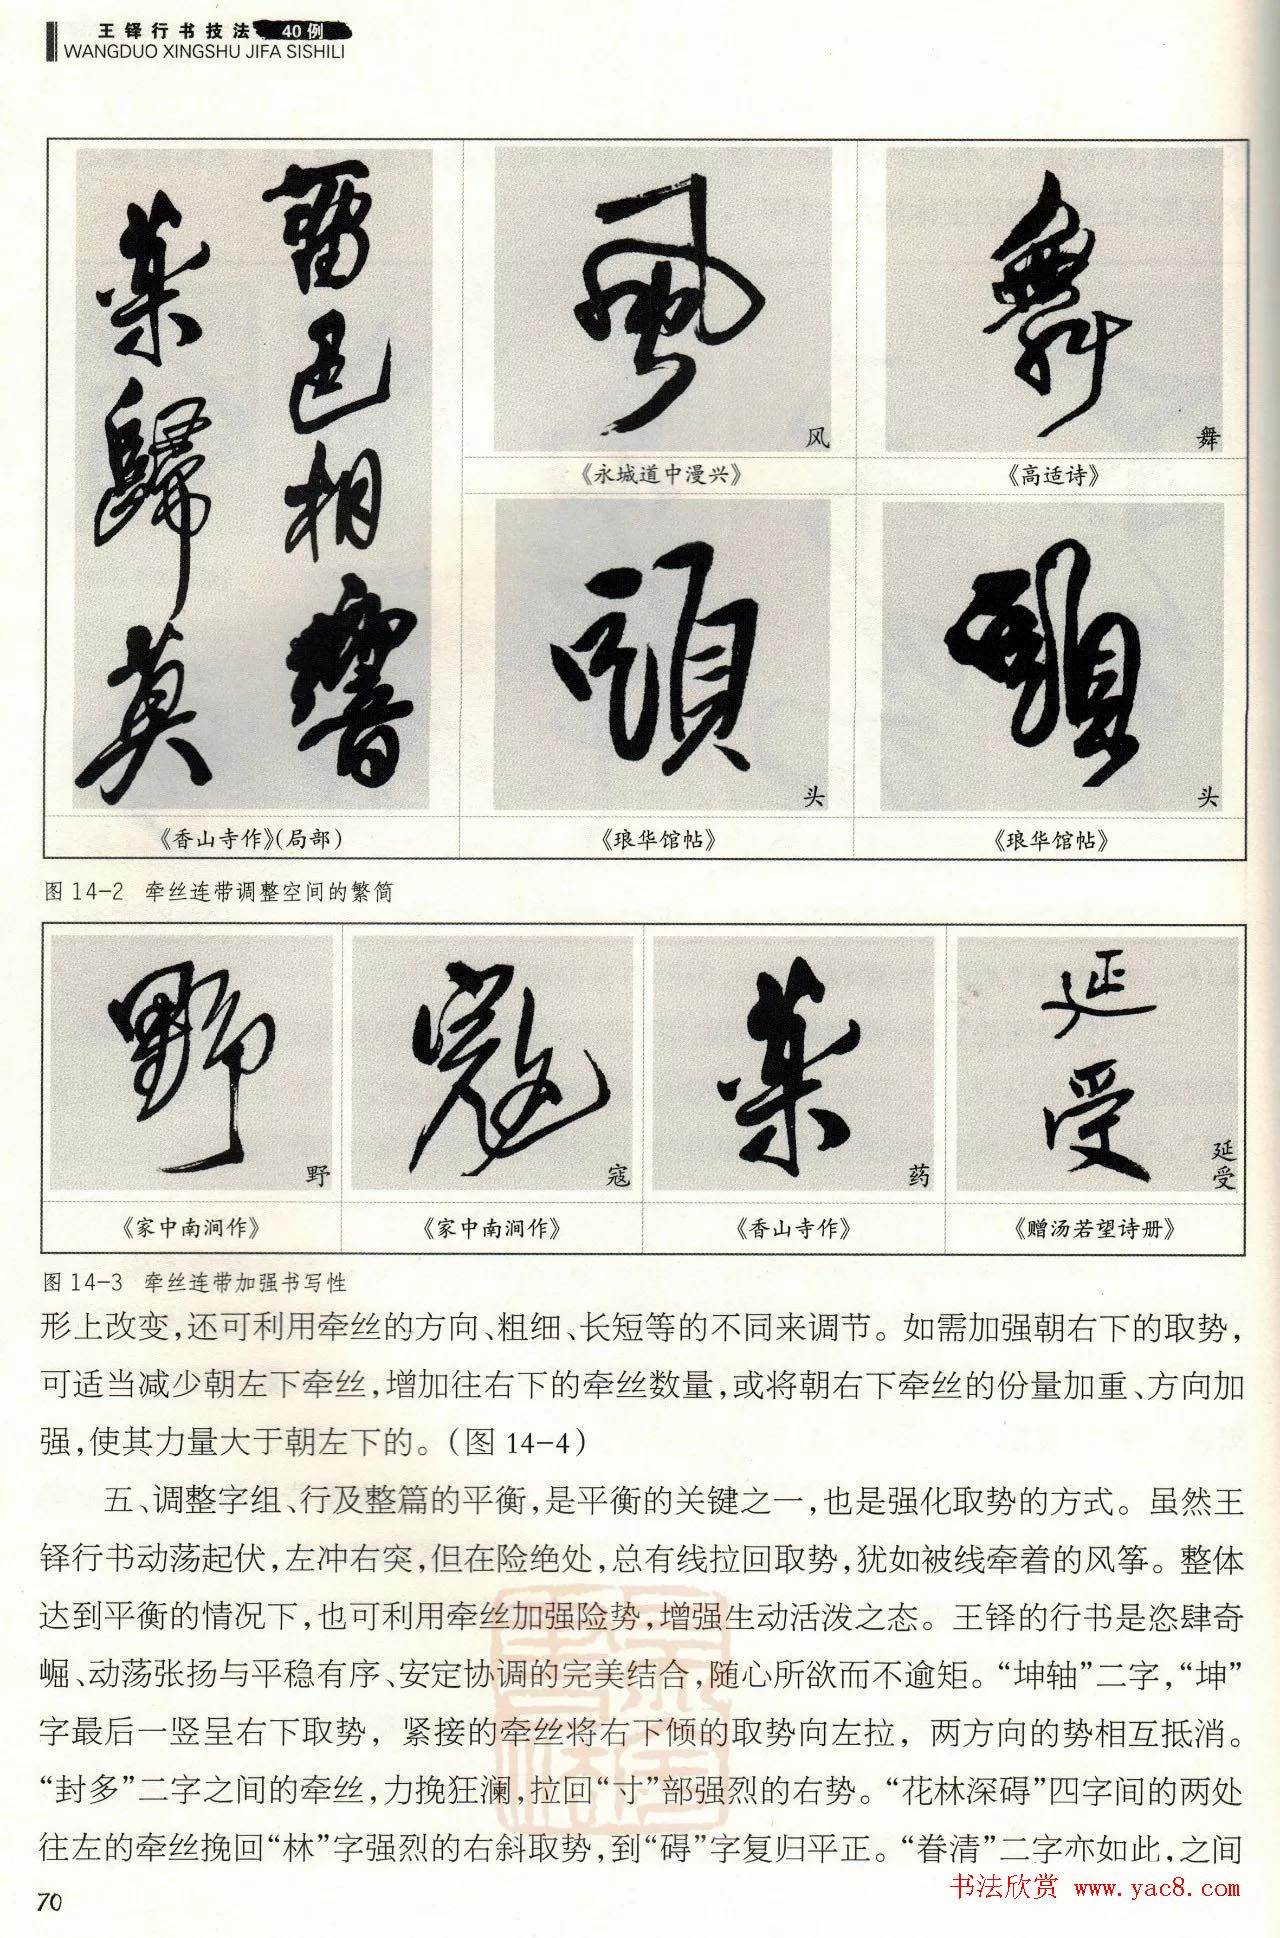 王铎行书技法 40例
WANGDUO XINGSHU JIFA SISHILI
旧邑相響
药歸莫
《香山寺作》(局部)
風
风
《永城道中漫兴》
舞
舞
《高适诗》
頭
头
《琅华馆帖》
頭
头
《琅华馆帖》
图 14-2 牵丝连带调整空间的繁简
野
野
《家中南涧作》
寇
寇
《家中南涧作》
药
《香山寺作》
延受
延受
《赠汤若望诗册》
图 14-3 牵丝连带加强书写性
形上改变,还可利用牵丝的方向、粗细、长短等的不同来调节。如需加强朝右下的取势,
可适当减少朝左下牵丝,增加往右下的牵丝数量,或将朝右下牵丝的份量加重、方向加
强,使其力量大于朝左下的。(图 14-4)
五、调整字组、行及整篇的平衡,是平衡的关键之一,也是强化取势的方式。虽然王
铎行书动荡起伏,左冲右突,但在险绝处,总有线拉回取势,犹如被线牵着的风筝。整体
达到平衡的情况下,也可利用牵丝加强险势,增强生动活泼之态。王铎的行书是恣肆奇
崛、动荡张扬与平稳有序、安定协调的完美结合,随心所欲而不逾矩。“坤轴”二字,“坤”
字最后一竖呈右下取势,紧接的牵丝将右下倾的取势向左拉,两方向的势相互抵消。
“封多”二字之间的牵丝,力挽狂澜,拉回“寸”部强烈的右势。“花林深碍”四字间的两处
往左的牵丝挽回“林”字强烈的右斜取势,到“碍”字复归平正。“眷清”二字亦如此,之间
70
书法欣赏 www.yac8.com